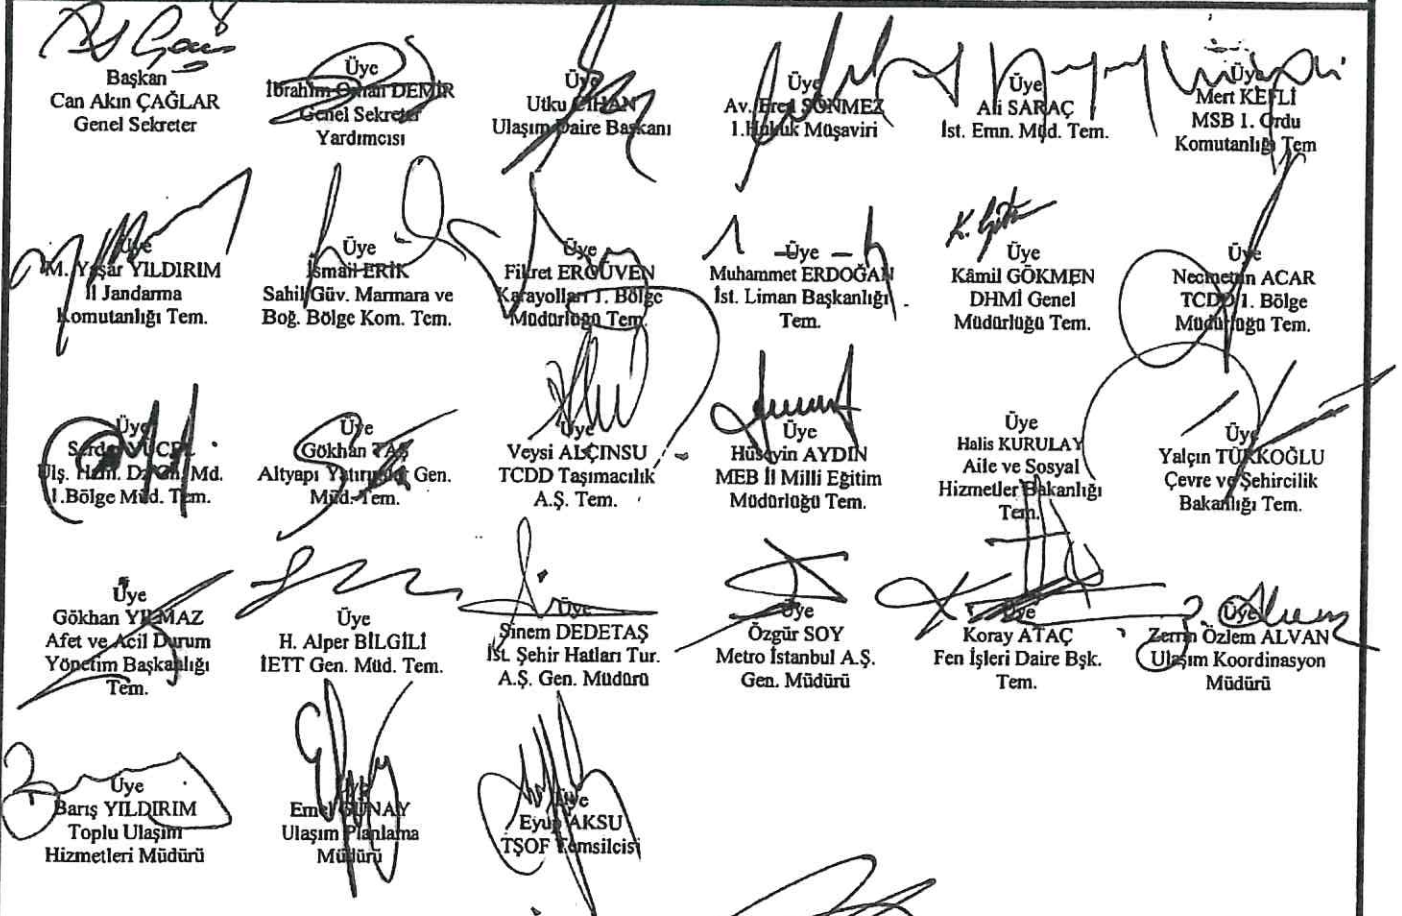 Başkan
Can Akın ÇAĞLAR
Genel Sekreter
Üye
İbrahim Orhan DEMİR
Genel Sekreter
Yardımcısı
Üye
Utku CİHAN
Ulaşım Daire Başkanı
Üye
Av. Eren SÖNMEZ
1.Hukuk Müşaviri
Üye
Ali SARAÇ
İst. Emn. Müd. Tem.
Üye
Mert KEFLİ
MSB 1. Ordu
Komutanlığı Tem
Üye
M. Yaşar YILDIRIM
İl Jandarma
Komutanlığı Tem.
Üye
İsmail ERİK
Sahil Güv. Marmara ve
Boğ. Bölge Kom. Tem.
Üye
Fikret ERGÜVEN
Karayolları 1. Bölge
Müdürlüğü Tem.
Üye
Muhammet ERDOĞAN
İst. Liman Başkanlığı
Tem.
Üye
Kâmil GÖKMEN
DHMİ Genel
Müdürlüğü Tem.
Üye
Necmettin ACAR
TCDD 1. Bölge
Müdürlüğü Tem.
Üye
Serdar YÜCEL
Ulş. Hzm. Dz. Gn. Md.
1.Bölge Müd. Tem.
Üye
Gökhan TAŞ
Altyapı Yatırımlar Gen.
Müd. Tem.
Üye
Veysi ALÇINSU
TCDD Taşımacılık
A.Ş. Tem.
Üye
Hüseyin AYDIN
MEB İl Milli Eğitim
Müdürlüğü Tem.
Üye
Halis KURULAY
Aile ve Sosyal
Hizmetler Bakanlığı
Tem.
Üye
Yalçın TÜRKOĞLU
Çevre ve Şehircilik
Bakanlığı Tem.
Üye
Gökhan YILMAZ
Afet ve Acil Durum
Yönetim Başkanlığı
Tem.
Üye
H. Alper BİLGİLİ
İETT Gen. Müd. Tem.
Üye
Sinem DEDETAŞ
İst. Şehir Hatları Tur.
A.Ş. Gen. Müdürü
Üye
Özgür SOY
Metro İstanbul A.Ş.
Gen. Müdürü
Üye
Koray ATAÇ
Fen İşleri Daire Bşk.
Tem.
Üye
Zerrin Özlem ALVAN
Ulaşım Koordinasyon
Müdürü
Üye
Barış YILDIRIM
Toplu Ulaşım
Hizmetleri Müdürü
Üye
Emel GÜNAY
Ulaşım Planlama
Müdürü
Üye
Eyup AKSU
TŞOF Temsilcisi